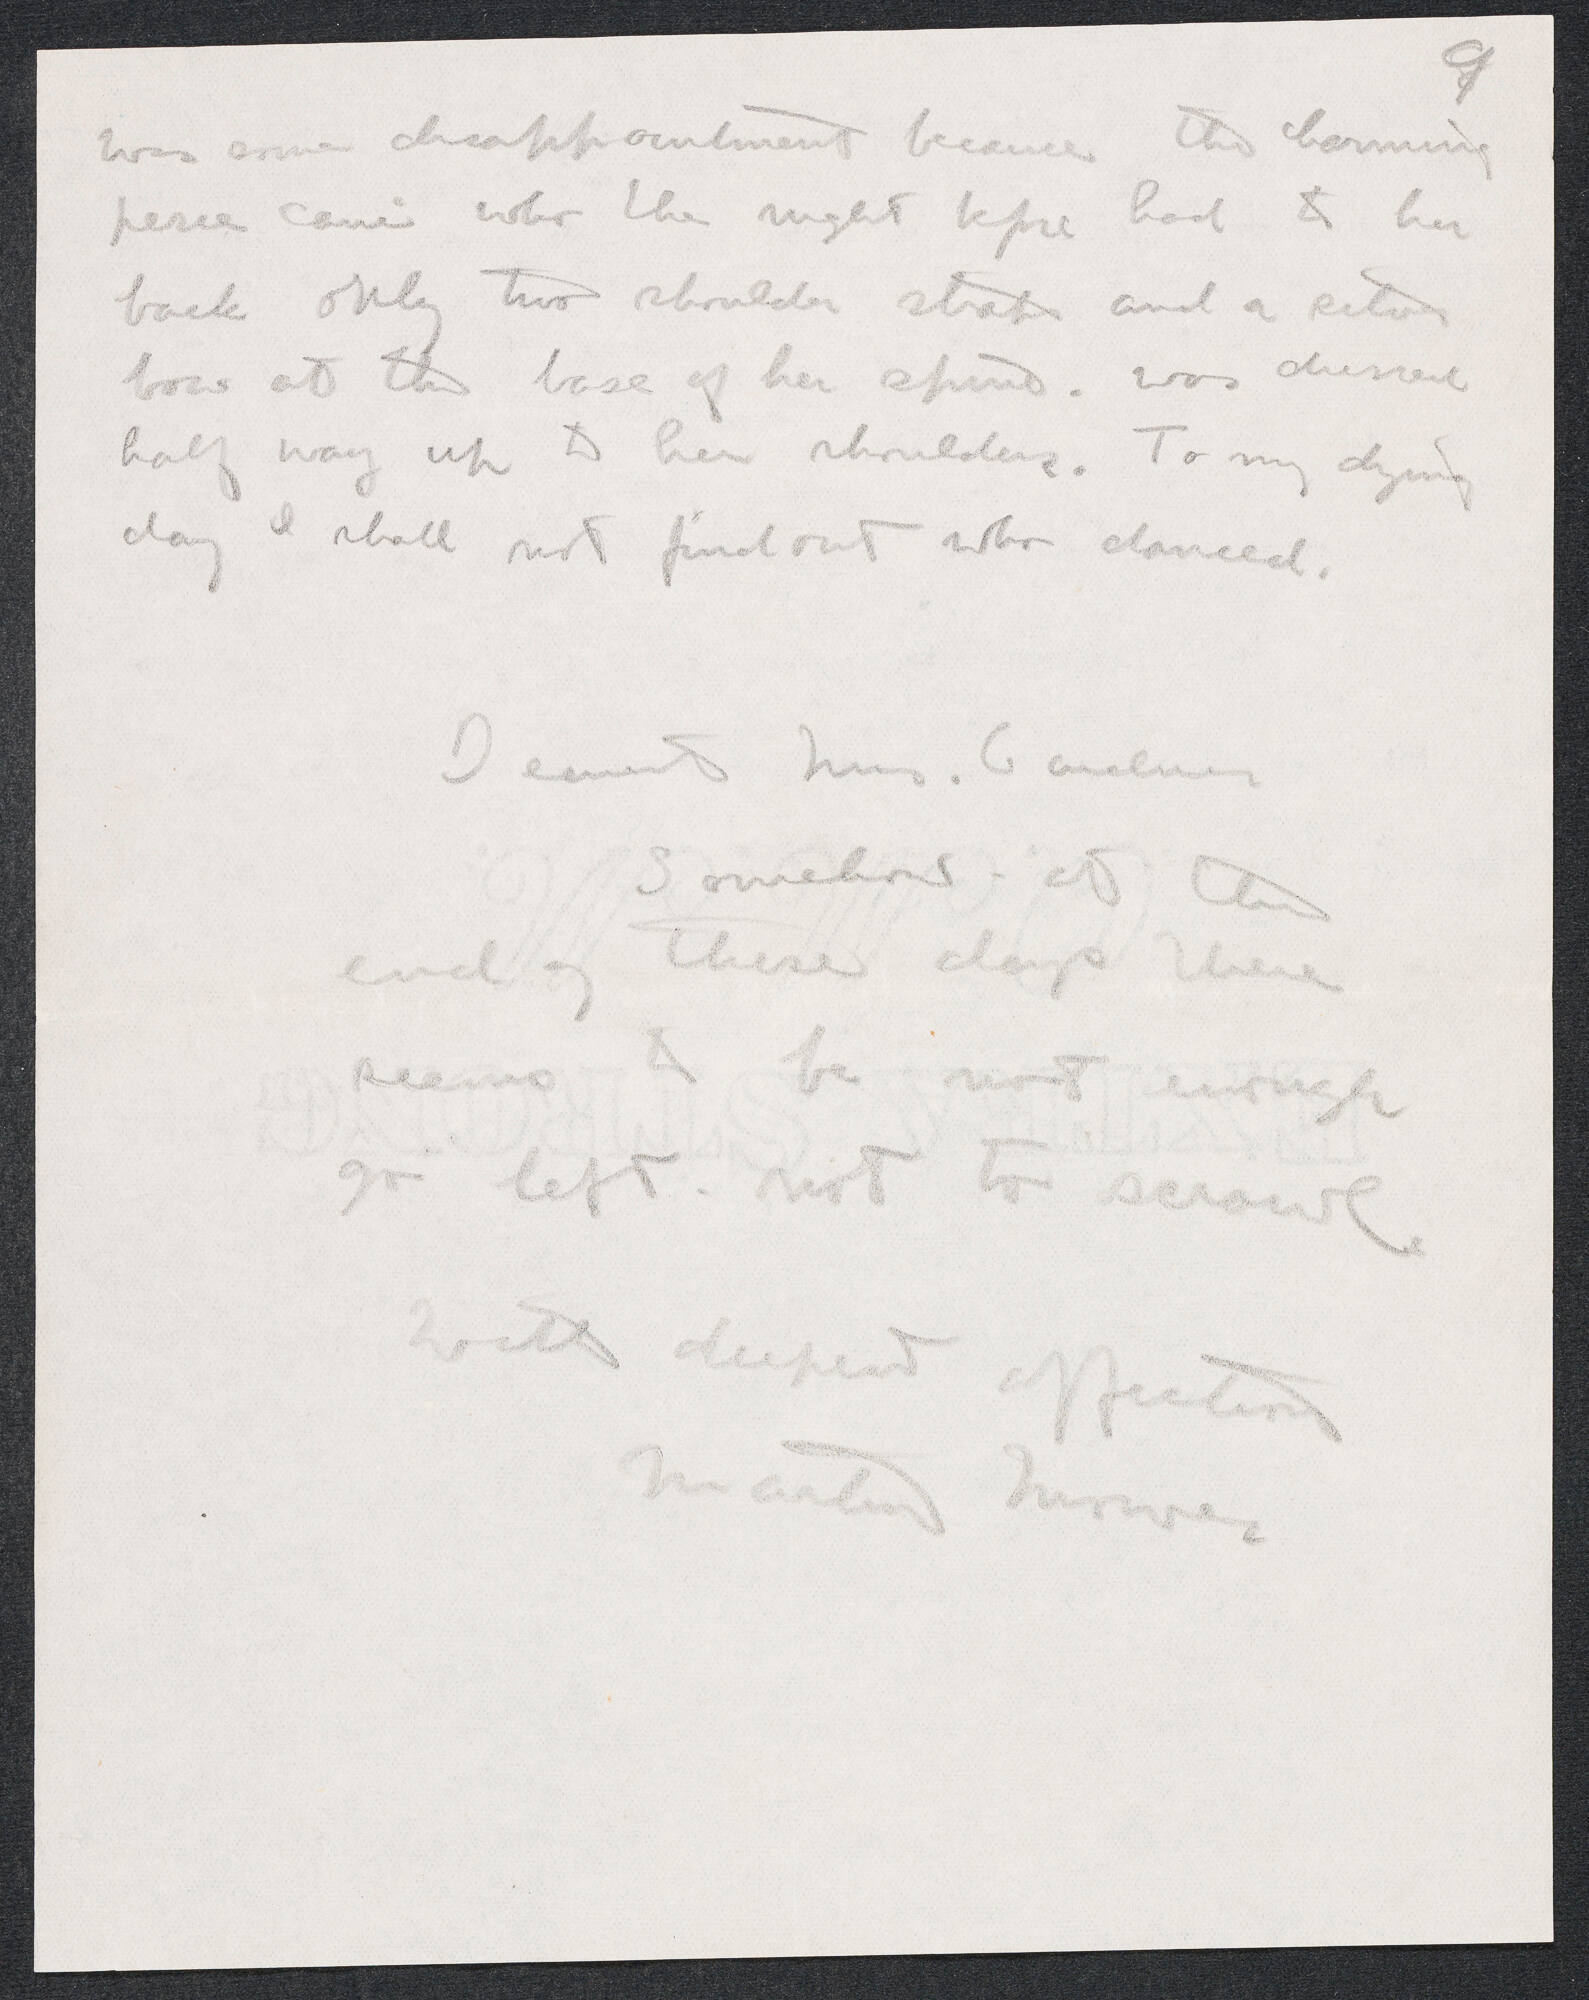 9
was some disappointment because the charming
who the night before had to her
back only two shoulder straps and a satin
bow at the base of her spine. was dressed
half way up to her shoulders. To my dying
day I shall not find out who danced.
Dearest Mrs. Gardner
Somehow - at the
end of these days there
seems to be not enough
go left - not to scrawl.
With deepest affection
Martin Mower